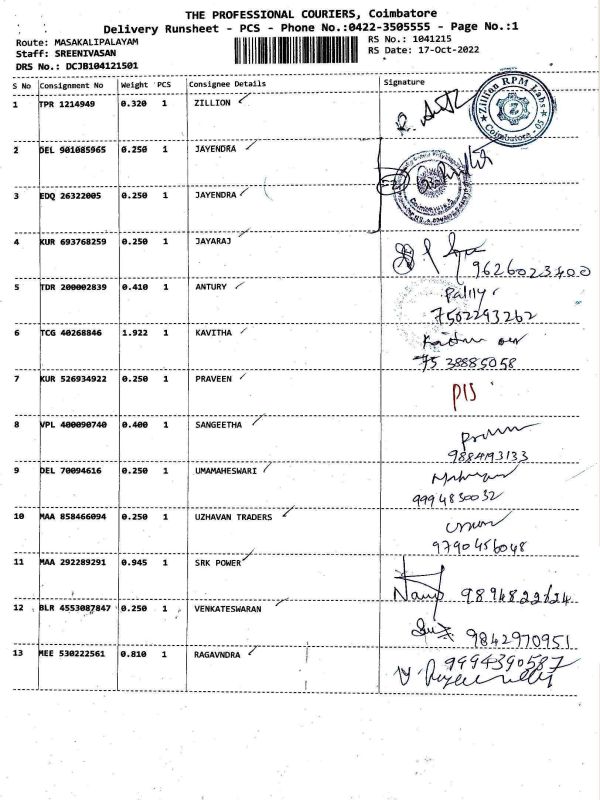 THE PROFESSIONAL COURIERS, Coimbatore
Delivery Runsheet - PCS - Phone No.:0422-3505555 - Page No.:1
Route: MASAKALIPALAYAM
RS No.: 1041215
Staff: SREENIVASAN
RS Date: 17-Oct-2022
DRS No.: DCJB104121501
S No Consignment No Weight PCS Consignee Details Signature
1 TPR 1214949 0.320 1 ZILLION
Zillion RPM Labs
Coimbatore - 05
2 DEL 901085965 0.250 1 JAYENDRA
3 EDQ 26322005 0.250 1 JAYENDRA
4 KUR 693768259 0.250 1 JAYARAJ
9626023400
5 TDR 200002839 0.410 1 ANTURY
7502293262
6 TCG 40268846 1.922 1 KAVITHA
75 38885058
7 KUR 526934922 0.250 1 PRAVEEN
8 VPL 400090740 0.400 1 SANGEETHA
9 DEL 70094616 0.250 1 UMAMAHESWARI
9994830032
10 MAA 858466094 0.250 1 UZHAVAN TRADERS
9790456048
11 MAA 292289291 0.945 1 SRK POWER
12 BLR 4553087847 0.250 1 VENKATESWARAN
9842970951
13 MEE 530222561 0.810 1 RAGAVNDRA
9994390587